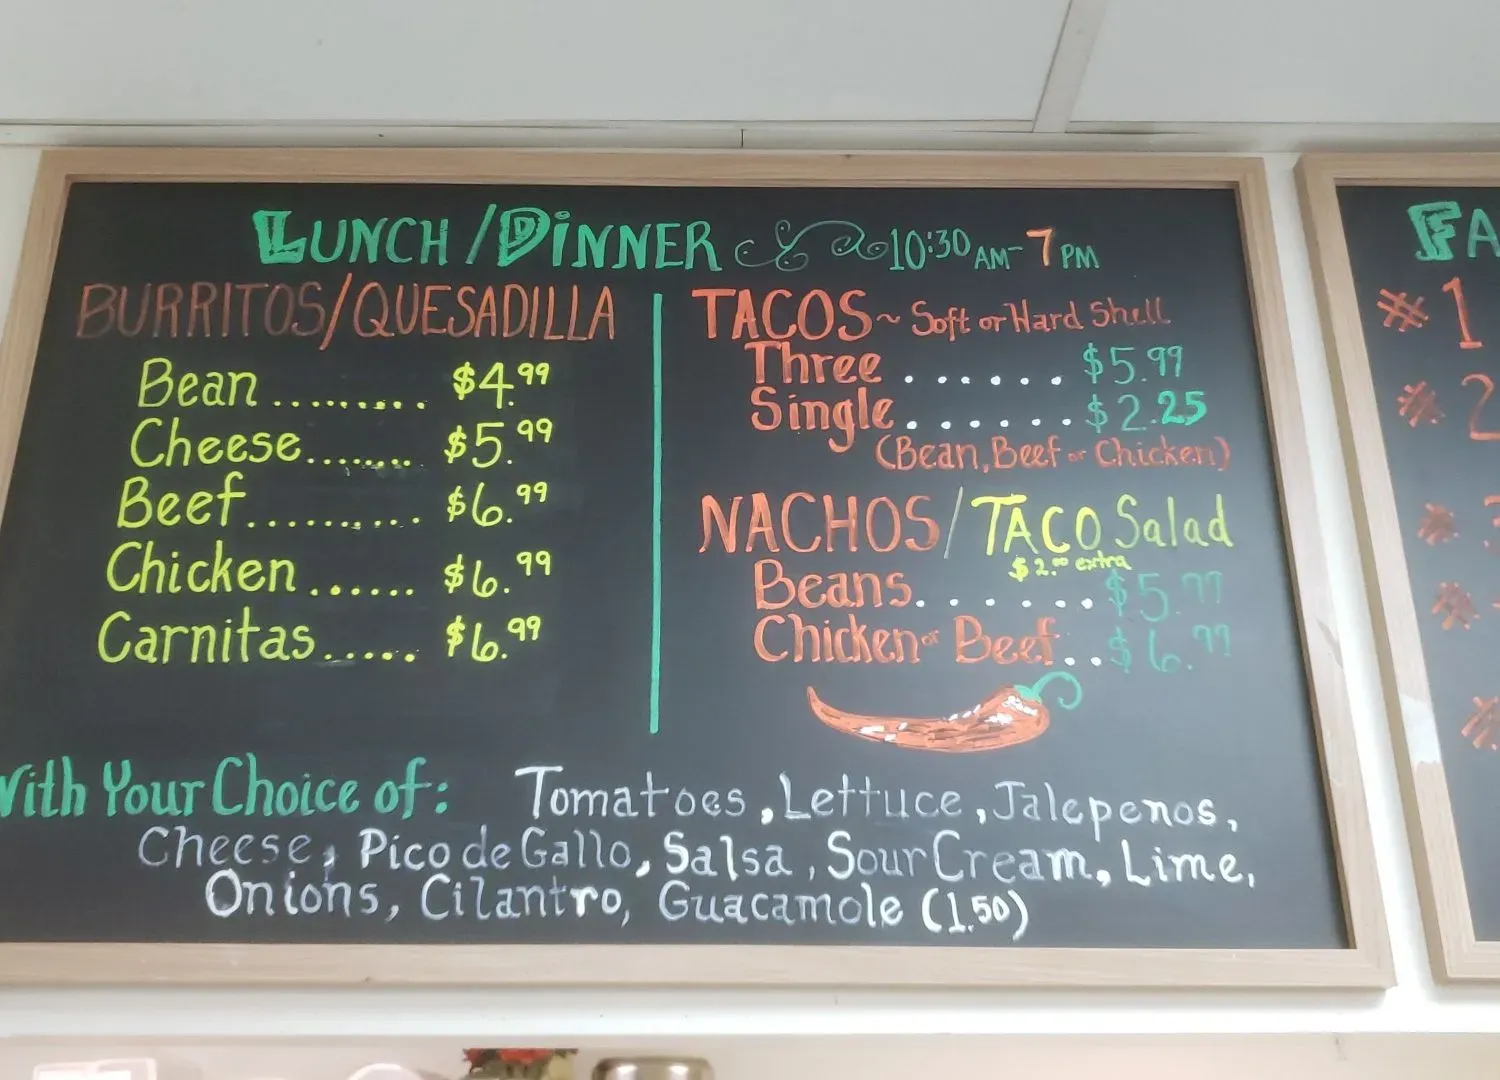 LUNCH/DINNER 10:30 AM- 7 PM
BURRITOS/QUESADILLA
Bean ......... $4.99
Cheese........ $5.99
Beef.......... $6.99
Chicken ...... $6.99
Carnitas..... $6.99
TACOS~ Soft or Hard Shell
Three . . . . . . $5.99
Single . . . . . . $2.25
(Bean, Beef or Chicken)
NACHOS/TACO Salad
$2.00 extra
Beans. . . . . . . $5.99
Chicken or Beef. . . $6.99
With Your Choice of: Tomatoes, Lettuce, Jalepenos,
Cheese, Pico de Gallo, Salsa, Sour Cream, Lime,
Onions, Cilantro, Guacamole (1.50)
FA
# 1
# 2